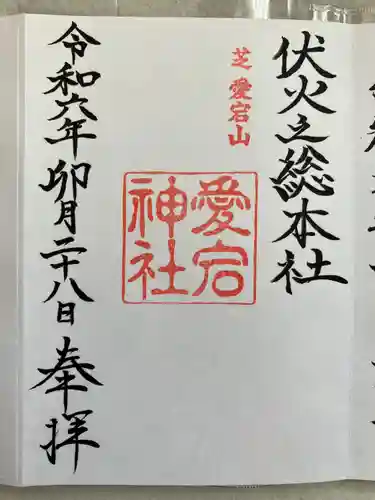 伏火之総本社
芝愛宕山
愛宕
神社
令和六年卯月二十八日奉拝